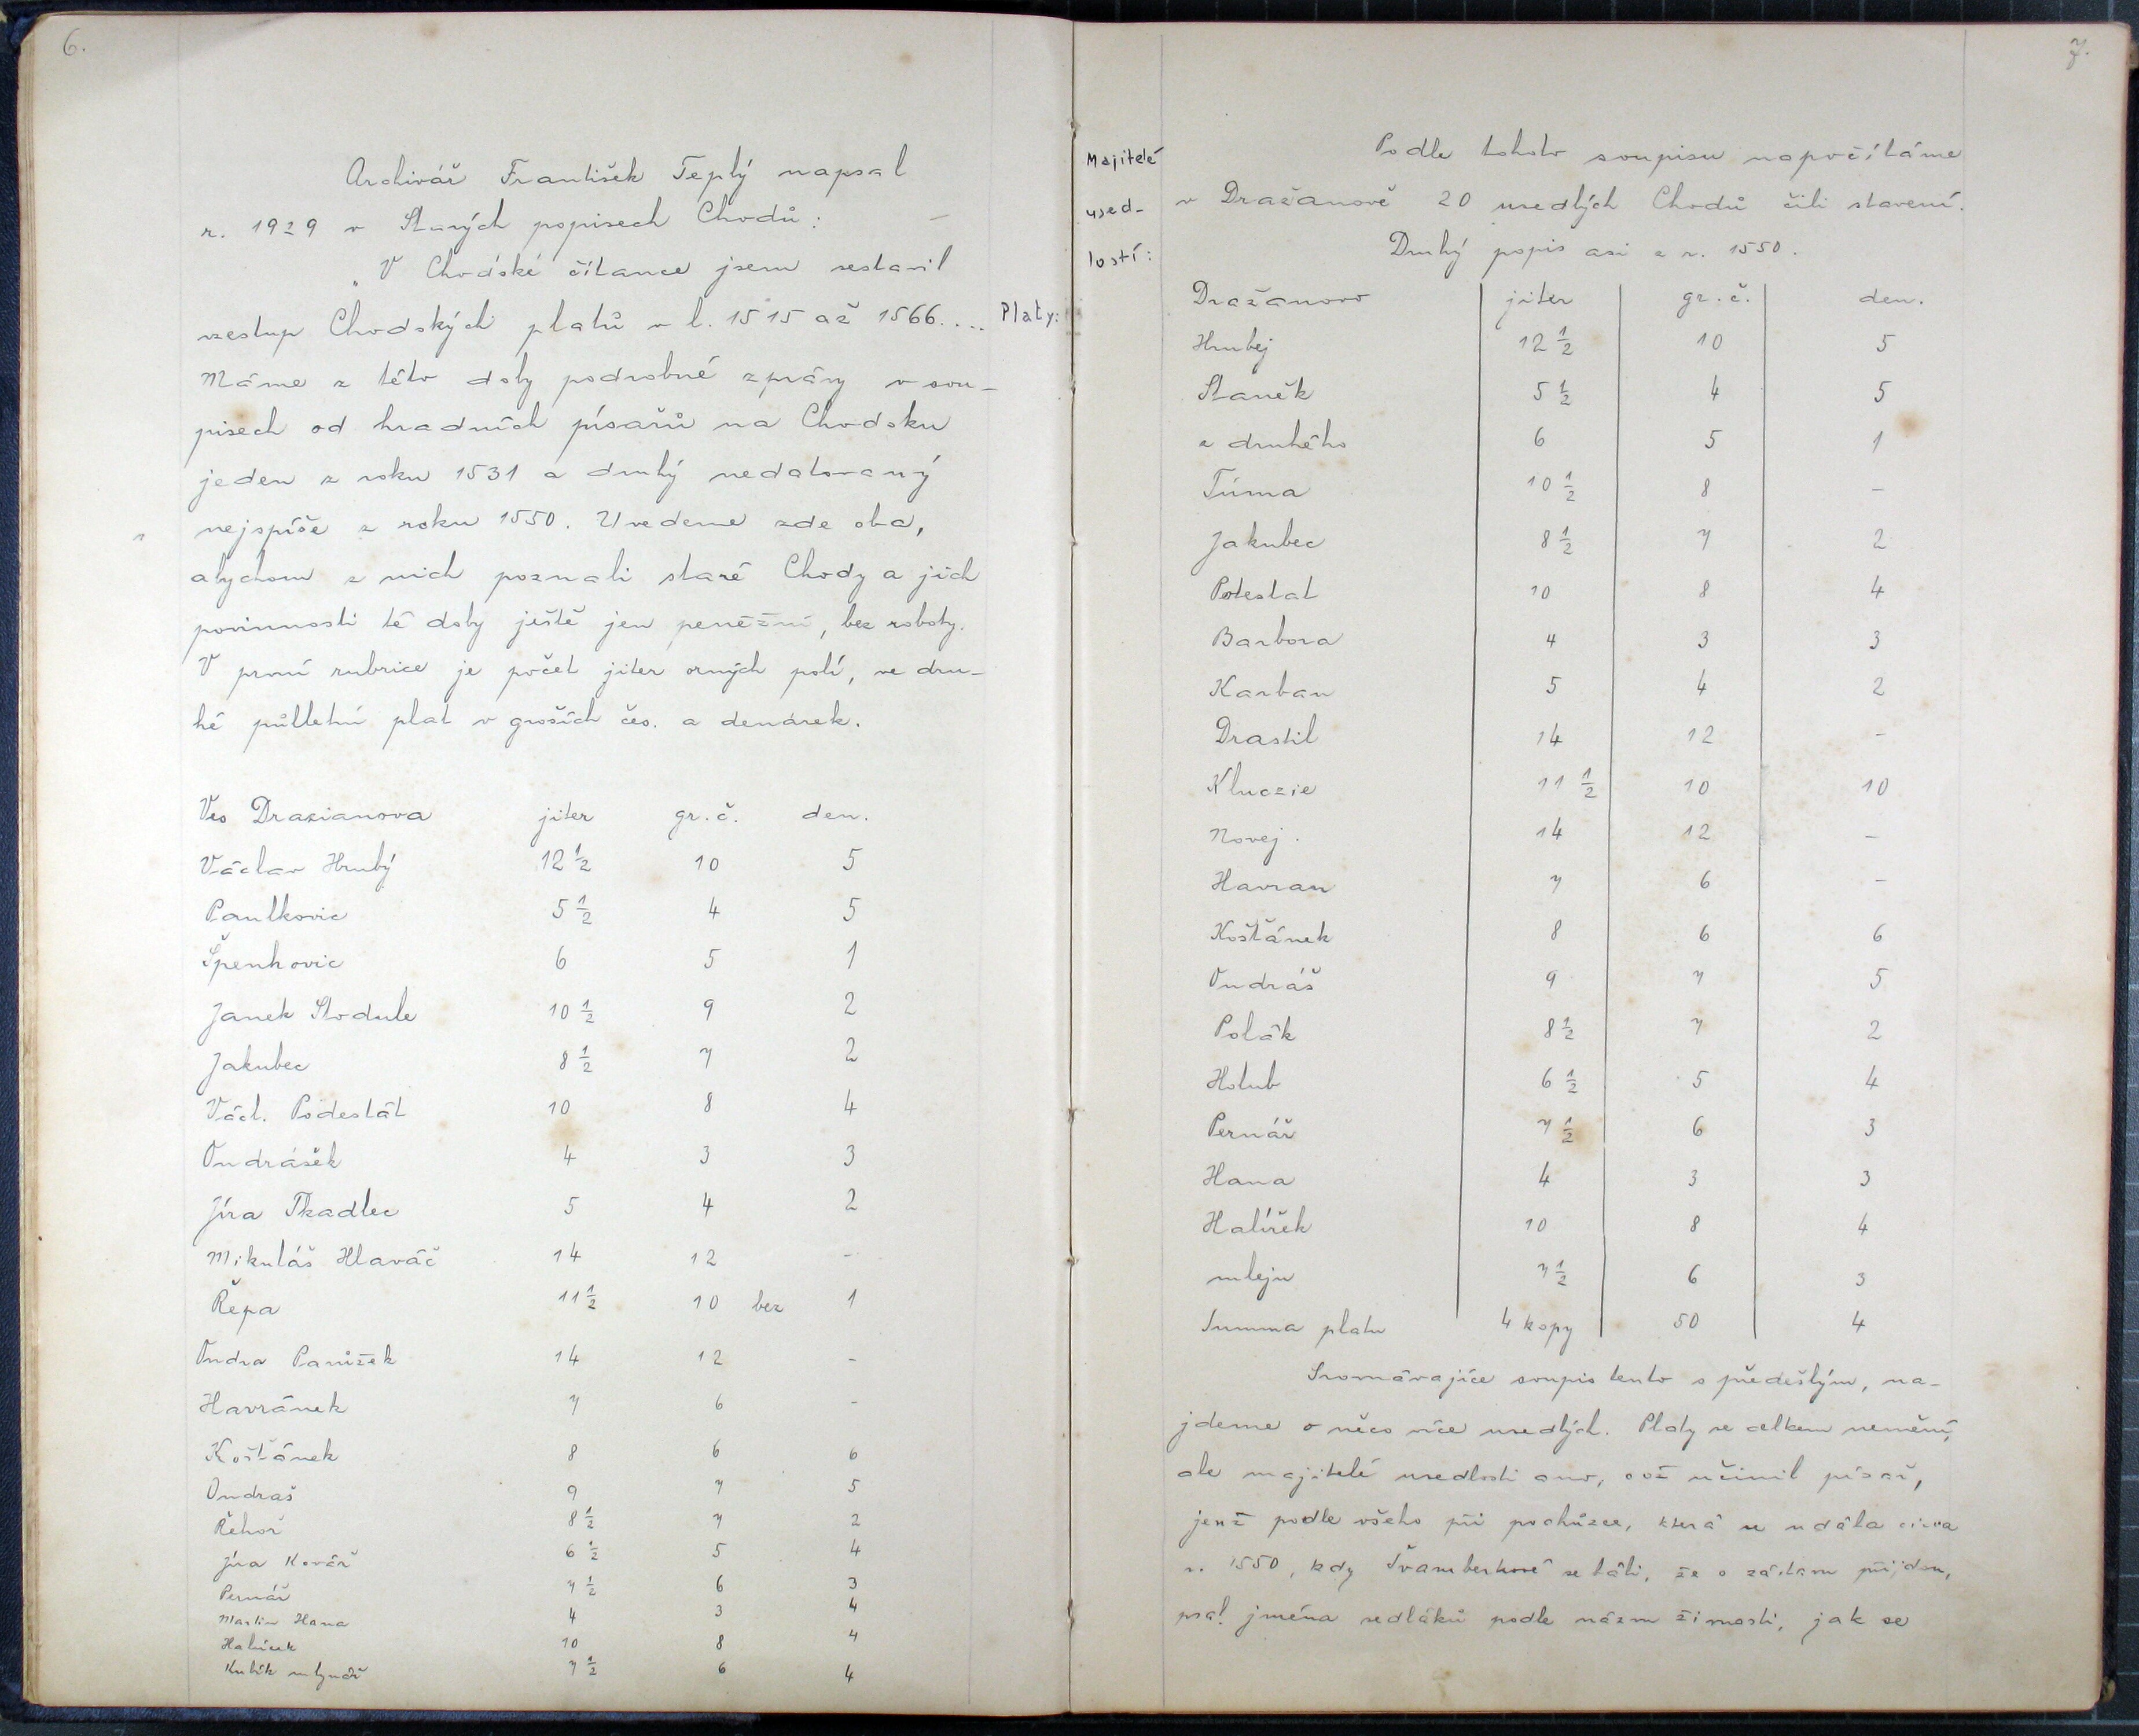 6.
Archivář František Teplý napsal
r. 1929 v Starých popisech Chodů: —
„V Chodské čítance jsem sestavil
vzestup Chodských platů v l. 1515 až 1566....
Platy:
Máme z této doby podrobné zprávy v sou-
pisech od hradních písařů na Chodsku
jeden z roku 1531 a druhý nedatovaný
nejspíše z roku 1550. Uvedeme zde oba,
abychom z nich poznali staré Chody a jich
povinnosti té doby ještě jen peněžní, bez roboty.
V první rubrice je počet jiter orných polí, ve dru-
hé půlletní plat v groších čes. a denárek.
Ves Drazianova jiter gr. č. den.
Václav Hrubý 12 1/2 10 5
Paulkovic 5 1/2 4 5
Špenkovic 6 5 1
Janek Stodule 10 1/2 9 2
Jakubec 8 1/2 7 2
Václ. Podestát 10 8 4
Ondrášek 4 3 3
Jíra Tkadlec 5 4 2
Mikuláš Hlaváč 14 12 -
Řepa 11 1/2 10 bez 1
Ondra Parůzek 14 12 -
Havránek 7 6 -
Košťánek 8 6 6
Ondraš 9 7 5
Řehoř 8 1/2 7 2
Jíra Kovář 6 1/2 5 4
Pernář 7 1/2 6 3
Martin Hana 4 3 4
Halíček 10 8 4
Kubík mlynář 7 1/2 6 4
7.
Majitelé
used-
lostí:
Podle tohoto soupisu napočítáme
v Dražanově 20 usedlých Chodů čili stavení.
Druhý popis asi z r. 1550.
Dražanovo jiter gr. č. den.
Hrubej 12 1/2 10 5
Staněk 5 1/2 4 5
z druhého 6 5 1
Tůma 10 1/2 8 —
Jakubec 8 1/2 7 2
Potestat 10 8 4
Barbora 4 3 3
Karban 5 4 2
Drastil 14 12 -
Kluczie 11 1/2 10 10
Novej. 14 12 —
Havran 7 6 -
Košťánek 8 6 6
Ondráš 9 7 5
Polák 8 1/2 7 2
Holub 6 1/2 5 4
Pernář 7 1/2 6 3
Hana 4 3 3
Halíček 10 8 4
mlejn 7 1/2 6 3
Summa platu 4 kopy 50 4
Srovnávajíce soupis tento s předešlým, na-
jdeme o něco více usedlých. Platy se celkem nemění,
ale majitelé usedlosti ano, což učinil písař,
jenž podle všeho při pochůzce, která se udála cirka
r. 1550, kdy Švamberkové se báli, že o zástavu přijdou,
psal jména sedláků podle názvu živnosti, jak se